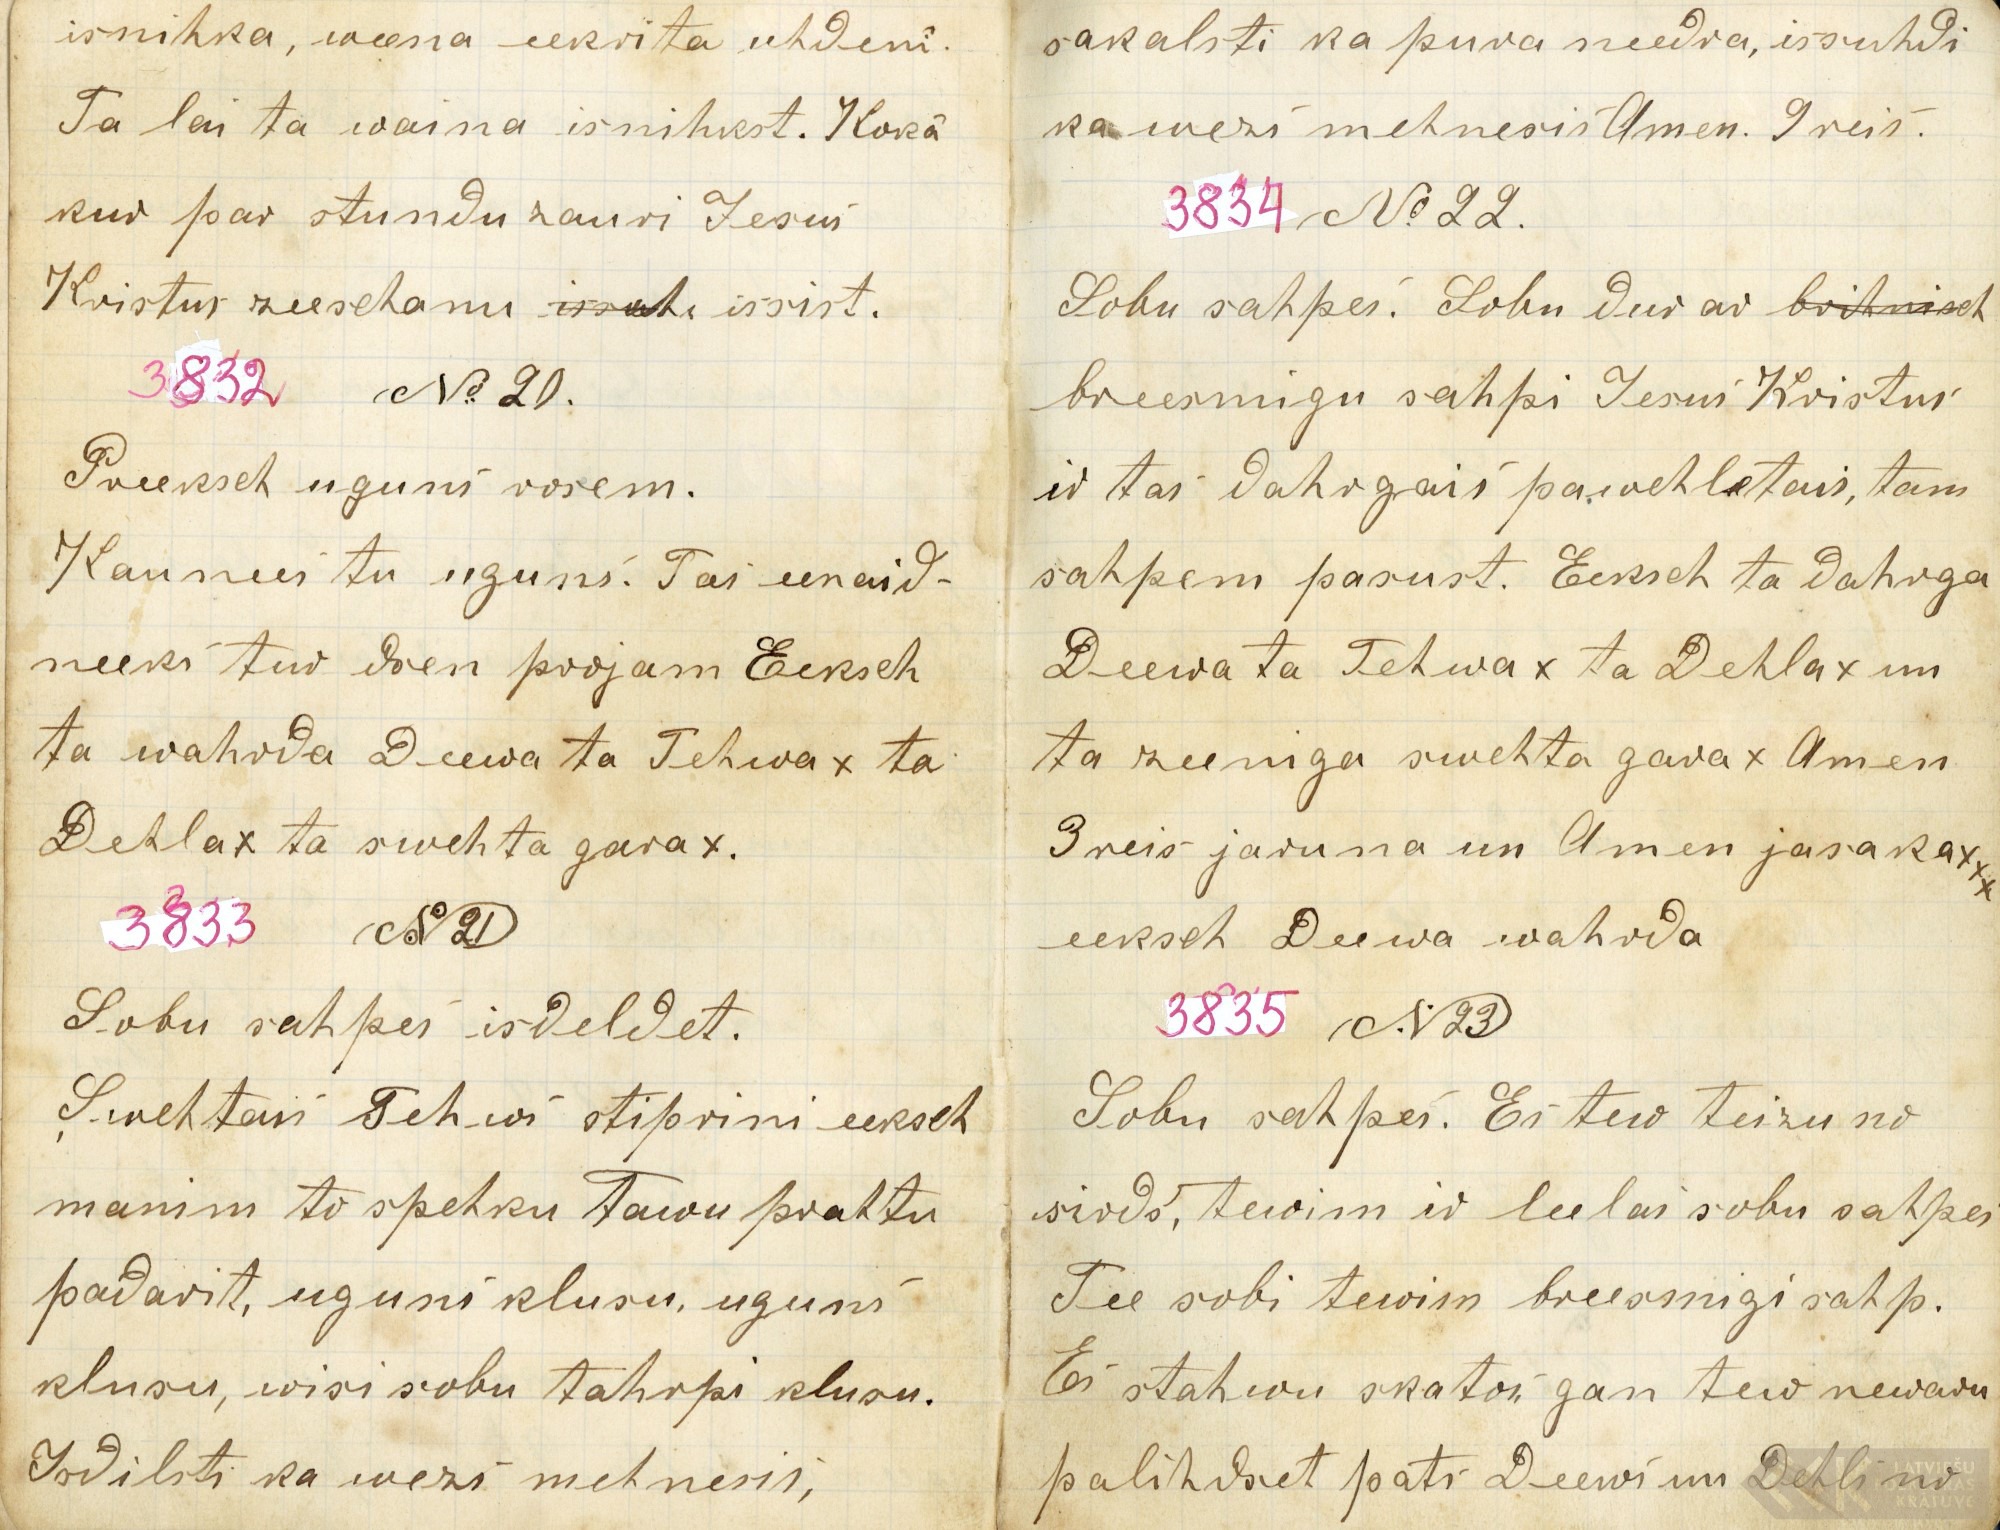 isnihka, weena eekrita uhdeni.
Ta lai ta waina isnihkst. Kokâ
kur par stundu zauri Jesus
Kristus zeeschanu issah issist.
3832 No 20.
Preeksch uguns rosem.
Kaunees tu uguns. Tas eenaid-
neeks tur dsen projam Eeksch
ta wahrda Deewa ta Tehwa x ta
Dehla x ta swehta gara x.
3833 No 21
Sobu sahpes isdeldet.
Swehtais Tehws stiprini eeksch
manim to spehku Tawu prahtu
padarit, uguns klusu, uguns
klusu, wisi sobu tahrpi klusu.
Isdilsti ka wezs mehnesis,
sakalsti ka pura needra, issuhdi
ka wezs mehnesis Amen. 9 reis.
3834 No 22.
Sobu sahpes. Sobu dur ar brihnisch
breesmigu sahpi Jesus Kristus
ir tas dahrgais pawehletais, tam
sahpem pasust. Eeksch ta dahrga
Deewa ta Tehwa x ta Dehla x un
ta zeeniga swehta gara x Amen
3 reis jaruna un Amen jasaka x x x
eeksch Deewa wahrda
3835 N 23
Sobu sahpes. Es tew teizu no
sirds, tewim ir leelas sobu sahpes
Tee sobi tewim breesmigi sahp.
Es stahwu skatos gan tew newaru
palihdset pats Deews un Dehls no
LATVIEŠU
FOLKLORAS
KRĀTUVE